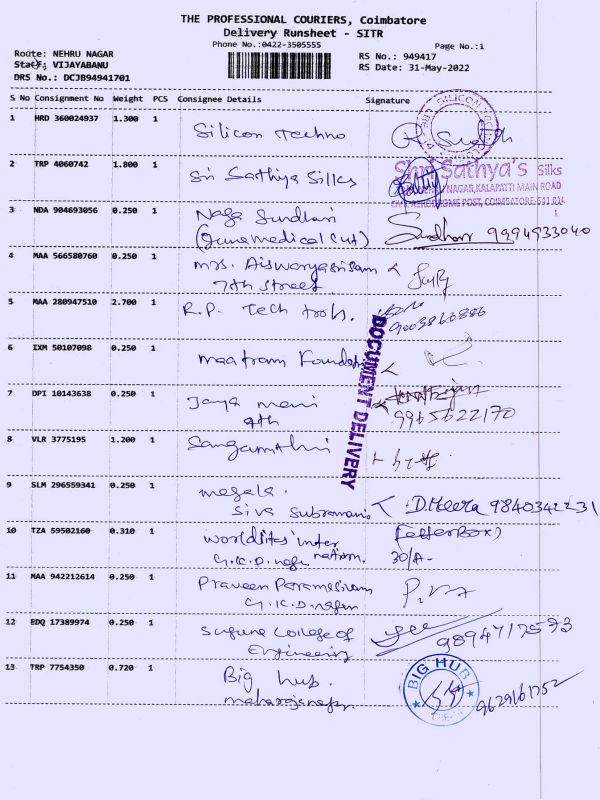 THE PROFESSIONAL COURIERS, Coimbatore
Delivery Runsheet - SITR
Phone No.:0422-3505555
Page No.:1
Route: NEHRU NAGAR
RS No.: 949417
Staff: VIJAYABANU
RS Date: 31-May-2022
DRS No.: DCJB94941701
S No Consignment No Weight PCS Consignee Details Signature
1 HRD 360024937 1.300 1
Silicon techno
2 TRP 4060742 1.800 1
Sri Sathiya Silks
Shri Sathya's Silks
NAGAR, KALAPATTI MAIN ROAD
POST, COIMBATORE-641 014
3 NDA 904693056 0.250 1
Naga Sundhari 9394933040
4 MAA 566580760 0.250 1
Mrs. Aiswaryasriram
7th street
5 MAA 280947510 2.700 1
R.P. Tech
DOCUMENT DELIVERY
6 IXM 50107098 0.250 1
maatram Foundation
7 DPI 10143638 0.250 1
Jaya mani
9th
9965622170
8 VLR 3775195 1.200 1
9 SLM 296559341 0.250 1
megala.
Siva Subramani. D.Meera 9840342231
10 TZA 59502160 0.310 1
(Letter Box)
G.K.D. nagar 30/A-
11 MAA 942212614 0.250 1
Praveen Parameswaran
G.K.D. nagar
12 EDQ 17389974 0.250 1
Suguna College of
Engineering
9894717593
13 TRP 7754350 0.720 1
Big hub.
BIG HUB
9629161752